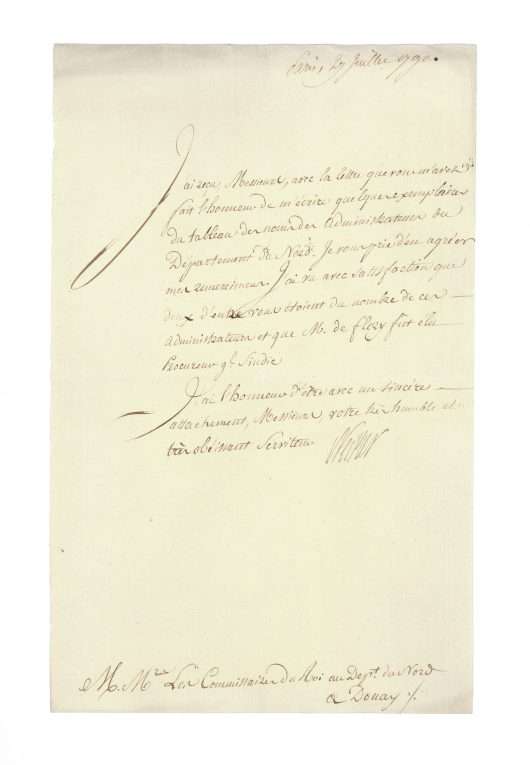 Paris, 27 Juillet 1790.
J'ai reçu, Messieurs, avec la lettre que vous m'avez
fait l'honneur de m'écrire quelques exemplaires
du tableau des noms des administrateurs du
Département du Nord. Je vous prie d'en agréer
mes remerciemens. J'ai vu avec satisfaction que
deux d'entre vous étoient du nombre de ces
administrateurs et que M. de fut elu
Procureur g.^l Sindic
J'ai l'honneur d'être avec un sincère
attachement, Messieurs, votre très humble et
très obéissant Serviteur
M. M.^rs Les Commissaires du Roi au Dep.^t du Nord
à Douay ./.